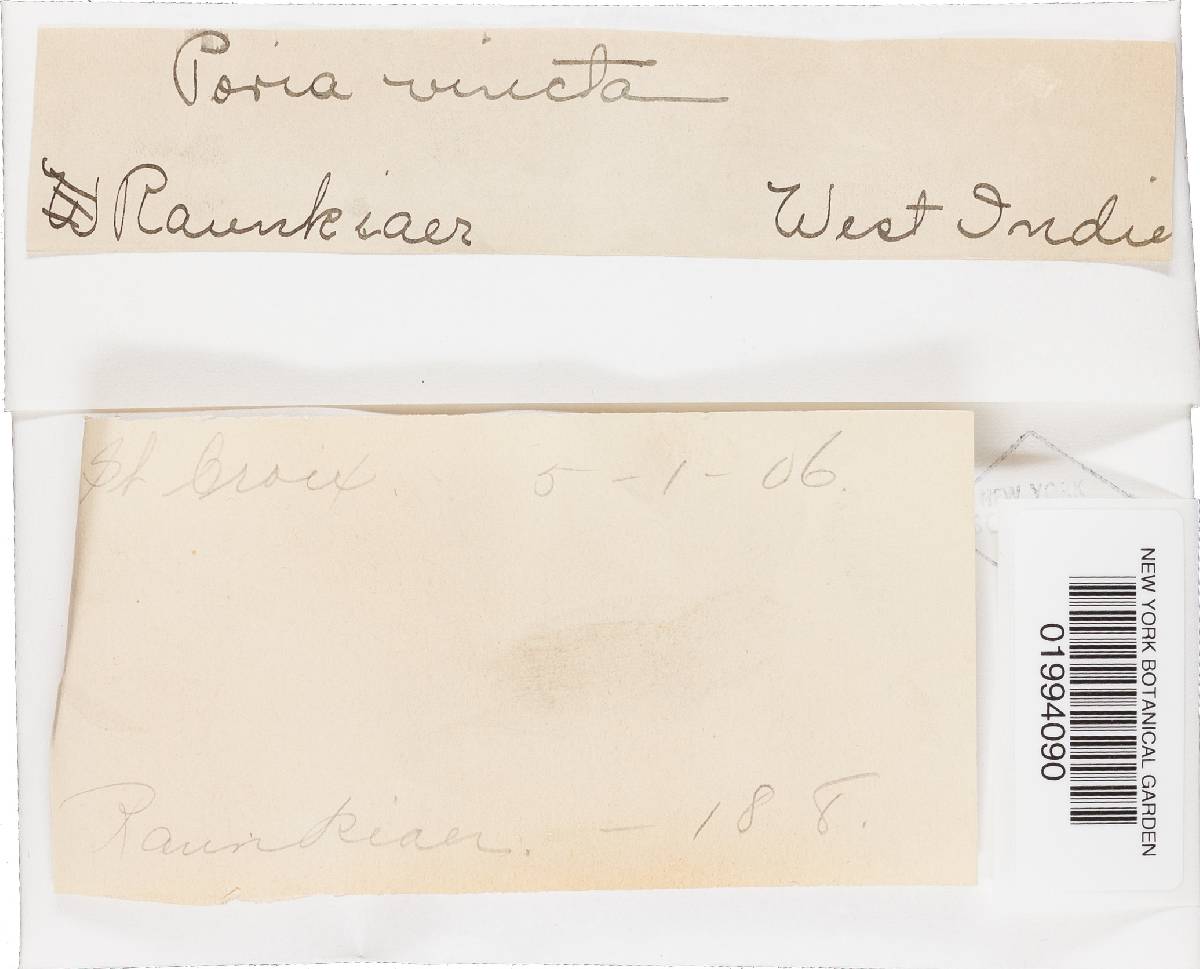 Poria vincta
Raunkiaer West Indie
St Croix 5-1-06.
NEW YORK
Raunkiaer. - 188.
NEW YORK BOTANICAL GARDEN
01994090